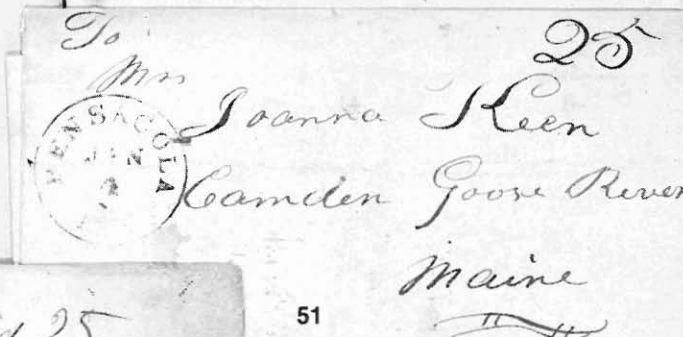 To
25
Mrs
Joanna Keen
PENSACOLA
JAN
Camden Goose River
Maine
51
25